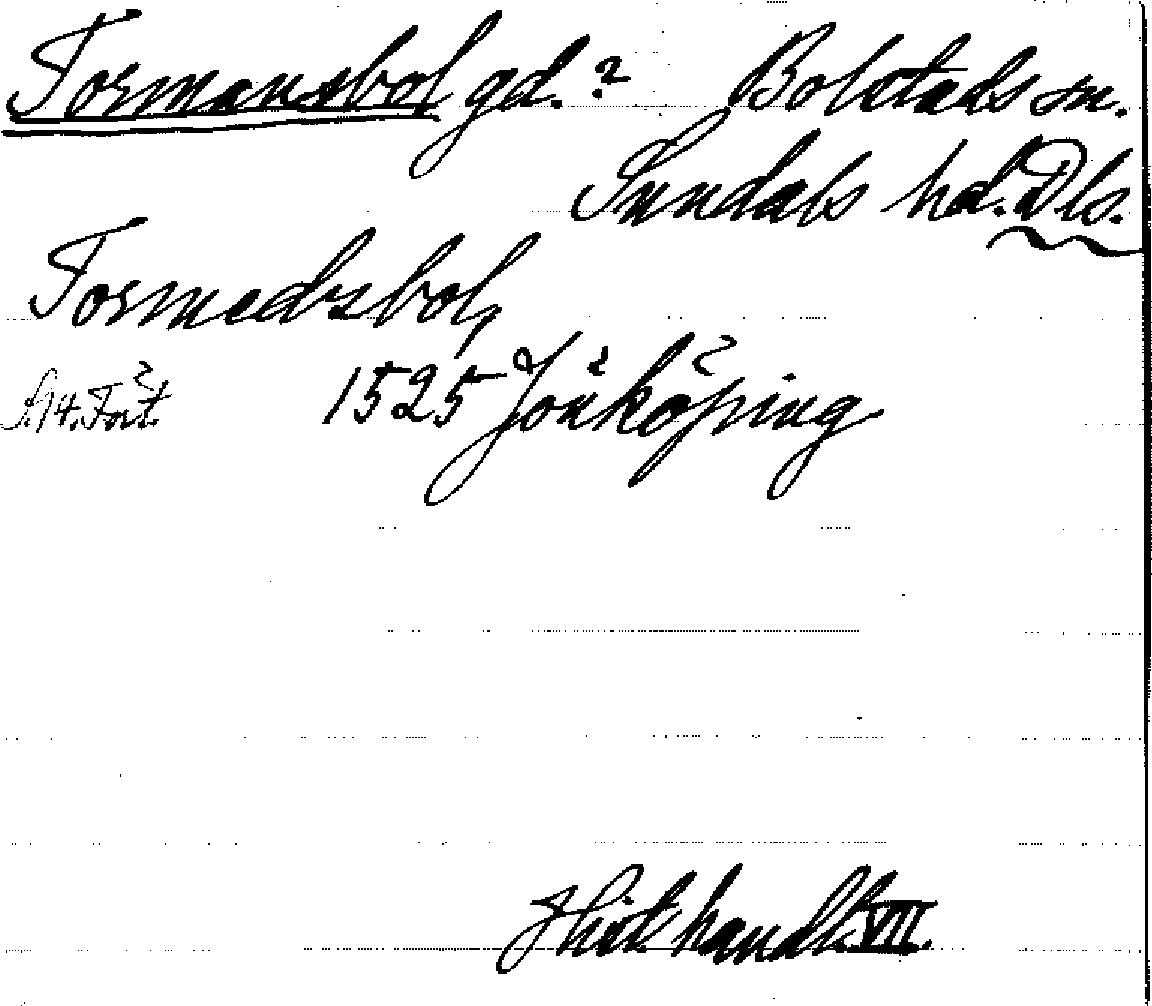 Tormansbol gd.? Bolstads sn.
Sundals hd. Dls.
Tormodsbol,
S. 14. Fört. 1525 Jönköping
Hist. handl. VII.